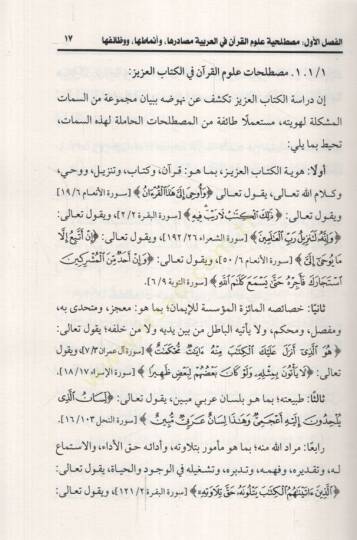 الفصل الأول: مصطلحية علوم القرآن في العربية مصادرها، وأنماطها، ووظائفها ١٧
١/١. ١. مصطلحات علوم القرآن في الكتاب العزيز:
إن دراسة الكتاب العزيز تكشف عن نهوضه ببيان مجموعة من السمات
المشكلة لهويته، مستعملًا طائفة من المصطلحات الحاملة لهذه السمات،
تحيط بما يلي:
أولًا: هوية الكتاب العزيز، بما هو: قرآن، وكتاب، وتنزيل، ووحي،
وكلام الله تعالى، يقول تعالى ﴿وَأُوحِيَ إِلَيَّ هَٰذَا الْقُرْءَانُ﴾ [سورة الأنعام ١٩/٦]
ويقول تعالى: ﴿ذَٰلِكَ الْكِتَٰبُ لَا رَيْبَ فِيهِ﴾ [سورة البقرة ٢/٢]، ويقول تعالى:
﴿وَإِنَّهُ لَتَنزِيلُ رَبِّ الْعَٰلَمِينَ﴾ [سورة الشعراء ١٩٢/٢٦]، ويقول تعالى: ﴿إِنْ أَتَّبِعُ إِلَّا
مَا يُوحَىٰ إِلَيَّ﴾ [سورة الأنعام ٥٠/٦]، ويقول تعالى: ﴿وَإِنْ أَحَدٌ مِّنَ الْمُشْرِكِينَ
اسْتَجَارَكَ فَأَجِرْهُ حَتَّىٰ يَسْمَعَ كَلَٰمَ اللَّهِ﴾ [سورة التوبة ٦/٩].
ثانيًا: خصائصه المائزة المؤسسة للإيمان؛ بما هو: معجز، ومتحدى به،
ومفصل، ومحكم، ولا يأتيه الباطل من بين يديه ولا من خلفه؛ يقول تعالى:
﴿هُوَ الَّذِي أَنزَلَ عَلَيْكَ الْكِتَٰبَ مِنْهُ ءَايَٰتٌ مُّحْكَمَٰتٌ﴾ [سورة آل عمران ٧/٣]، ويقول
تعالى: ﴿لَا يَأْتُونَ بِمِثْلِهِ وَلَوْ كَانَ بَعْضُهُمْ لِبَعْضٍ ظَهِيرًا﴾ [سورة الإسراء ٨٨/١٧].
ثالثًا: طبيعته؛ بما هو بلسان عربي مبين، يقول تعالى: ﴿لِّسَانُ الَّذِي
يُلْحِدُونَ إِلَيْهِ أَعْجَمِيٌّ وَهَٰذَا لِسَانٌ عَرَبِيٌّ مُّبِينٌ﴾ [سورة النحل ١٠٣/١٦].
رابعًا: مراد الله منه؛ بما هو مأمور بتلاوته، وأدائه حق الأداء، والاستماع
له، وتقديره، وفهمه، وتدبره، وتشغيله في الوجود والحياة، يقول تعالى:
﴿الَّذِينَ ءَاتَيْنَٰهُمُ الْكِتَٰبَ يَتْلُونَهُ حَقَّ تِلَاوَتِهِ﴾ [سورة البقرة ١٢١/٢]، ويقول تعالى: